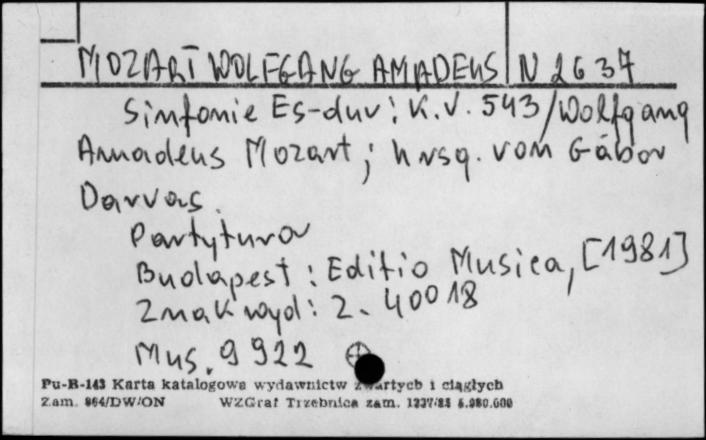 MOZART WOLFGANG AMADEUS N 2637
Sinfonie Es-dur; K.V. 543/Wolfgang
Amadeus Mozart; hrsg. von Gábor
Darvas.
Partytura
Budapest: Editio Musica, [1981]
Znak wyd: Z. 40018
Mus. 9922
Pu-B-143 Karta katalogowa wydawnictw zwartych i ciągłych
Zam. 864/DW/ON WZGraf Trzebnica zam.